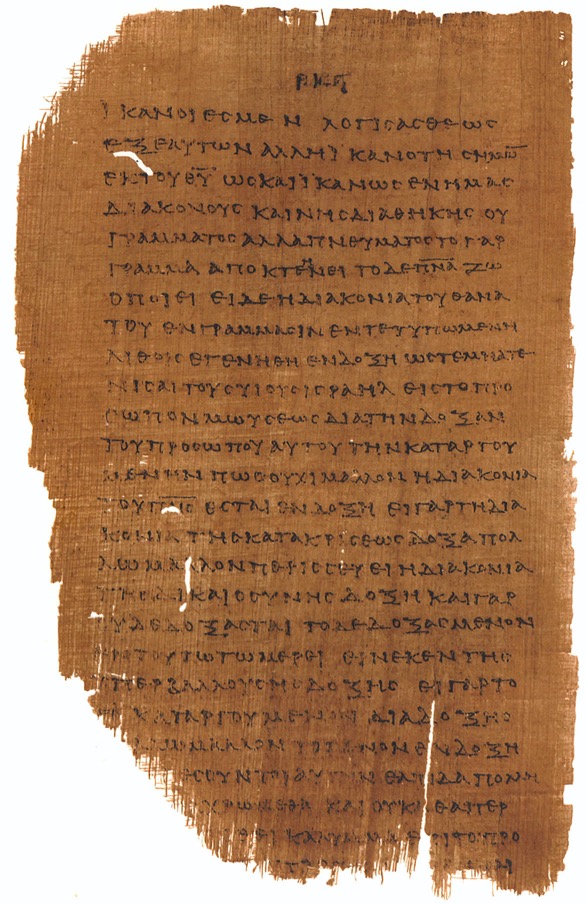 ΡΚΗ
ΪΚΑΝΟΙ ΕϹΜΕΝ ΛΟΓΙϹΑϹΘΕ ΩϹ
ΕΞ ΕΑΥΤΩΝ ΑΛΛ Η ΪΚΑΝΟΤΗϹ ΗΜΩ̅
ΕΚ ΤΟΥ Θ̅Υ̅ ΩϹ ΚΑΙ ΪΚΑΝΩϹΕΝ ΗΜΑϹ
ΔΙΑΚΟΝΟΥϹ ΚΑΙΝΗϹ ΔΙΑΘΗΚΗϹ ΟΥ
ΓΡΑΜΜΑΤΟϹ ΑΛΛΑ ΠΝΕΥΜΑΤΟϹ ΤΟ ΓΑΡ
ΓΡΑΜΜΑ ΑΠΟΚΤΕΝΝΕΙ ΤΟ ΔΕ Π̅Ν̅Α̅ ΖΩ
ΟΠΟΙΕΙ ΕΙ ΔΕ Η ΔΙΑΚΟΝΙΑ ΤΟΥ ΘΑΝΑ
ΤΟΥ ΕΝ ΓΡΑΜΜΑϹΙΝ ΕΝΤΕΤΥΠΩΜΕΝΗ
ΛΙΘΟΙϹ ΕΓΕΝΗΘΗ ΕΝ ΔΟΞΗ ΩϹΤΕ ΜΗ ΑΤΕ
ΝΙϹΑΙ ΤΟΥϹ ΥΙΟΥϹ ΙϹΡΑΗΛ ΕΙϹ ΤΟ ΠΡΟ
ϹΩΠΟΝ ΜΩΥϹΕΩϹ ΔΙΑ ΤΗΝ ΔΟΞΑΝ
ΤΟΥ ΠΡΟϹΩΠΟΥ ΑΥΤΟΥ ΤΗΝ ΚΑΤΑΡΓΟΥ
ΜΕΝΗΝ ΠΩϹ ΟΥΧΙ ΜΑΛΛΟΝ Η ΔΙΑΚΟΝΙΑ
ΤΟΥ Π̅Ν̅Ϲ̅ ΕϹΤΑΙ ΕΝ ΔΟΞΗ ΕΙ ΓΑΡ ΤΗ ΔΙΑ
ΚΟΝΙΑ ΤΗϹ ΚΑΤΑΚΡΙϹΕΩϹ ΔΟΞΑ ΠΟΛ
ΛΩ ΜΑΛΛΟΝ ΠΕΡΙϹϹΕΥΕΙ Η ΔΙΑΚΟΝΙΑ
ΤΗϹ ΔΙΚΑΙΟϹΥΝΗϹ ΔΟΞΗ ΚΑΙ ΓΑΡ
ΟΥ ΔΕΔΟΞΑϹΤΑΙ ΤΟ ΔΕΔΟΞΑϹΜΕΝΟΝ
ΕΝ ΤΟΥΤΩ ΤΩ ΜΕΡΕΙ ΕΙΝΕΚΕΝ ΤΗϹ
ΥΠΕΡΒΑΛΛΟΥϹΗϹ ΔΟΞΗϹ ΕΙ ΓΑΡ ΤΟ
ΚΑΤΑΡΓΟΥΜΕΝΟΝ ΔΙΑ ΔΟΞΗϹ
ΜΑΛΛΟΝ ΤΟ ΜΕΝΟΝ ΕΝ ΔΟΞΗ
ΕΛΠΙΔΑ
ΧΡΩΜΕΘΑ ΚΑΙ ΟΥ ΚΑΘΑΠΕΡ
ΚΑΛΥΜΜΑ ΕΠΙ ΤΟ ΠΡΟ